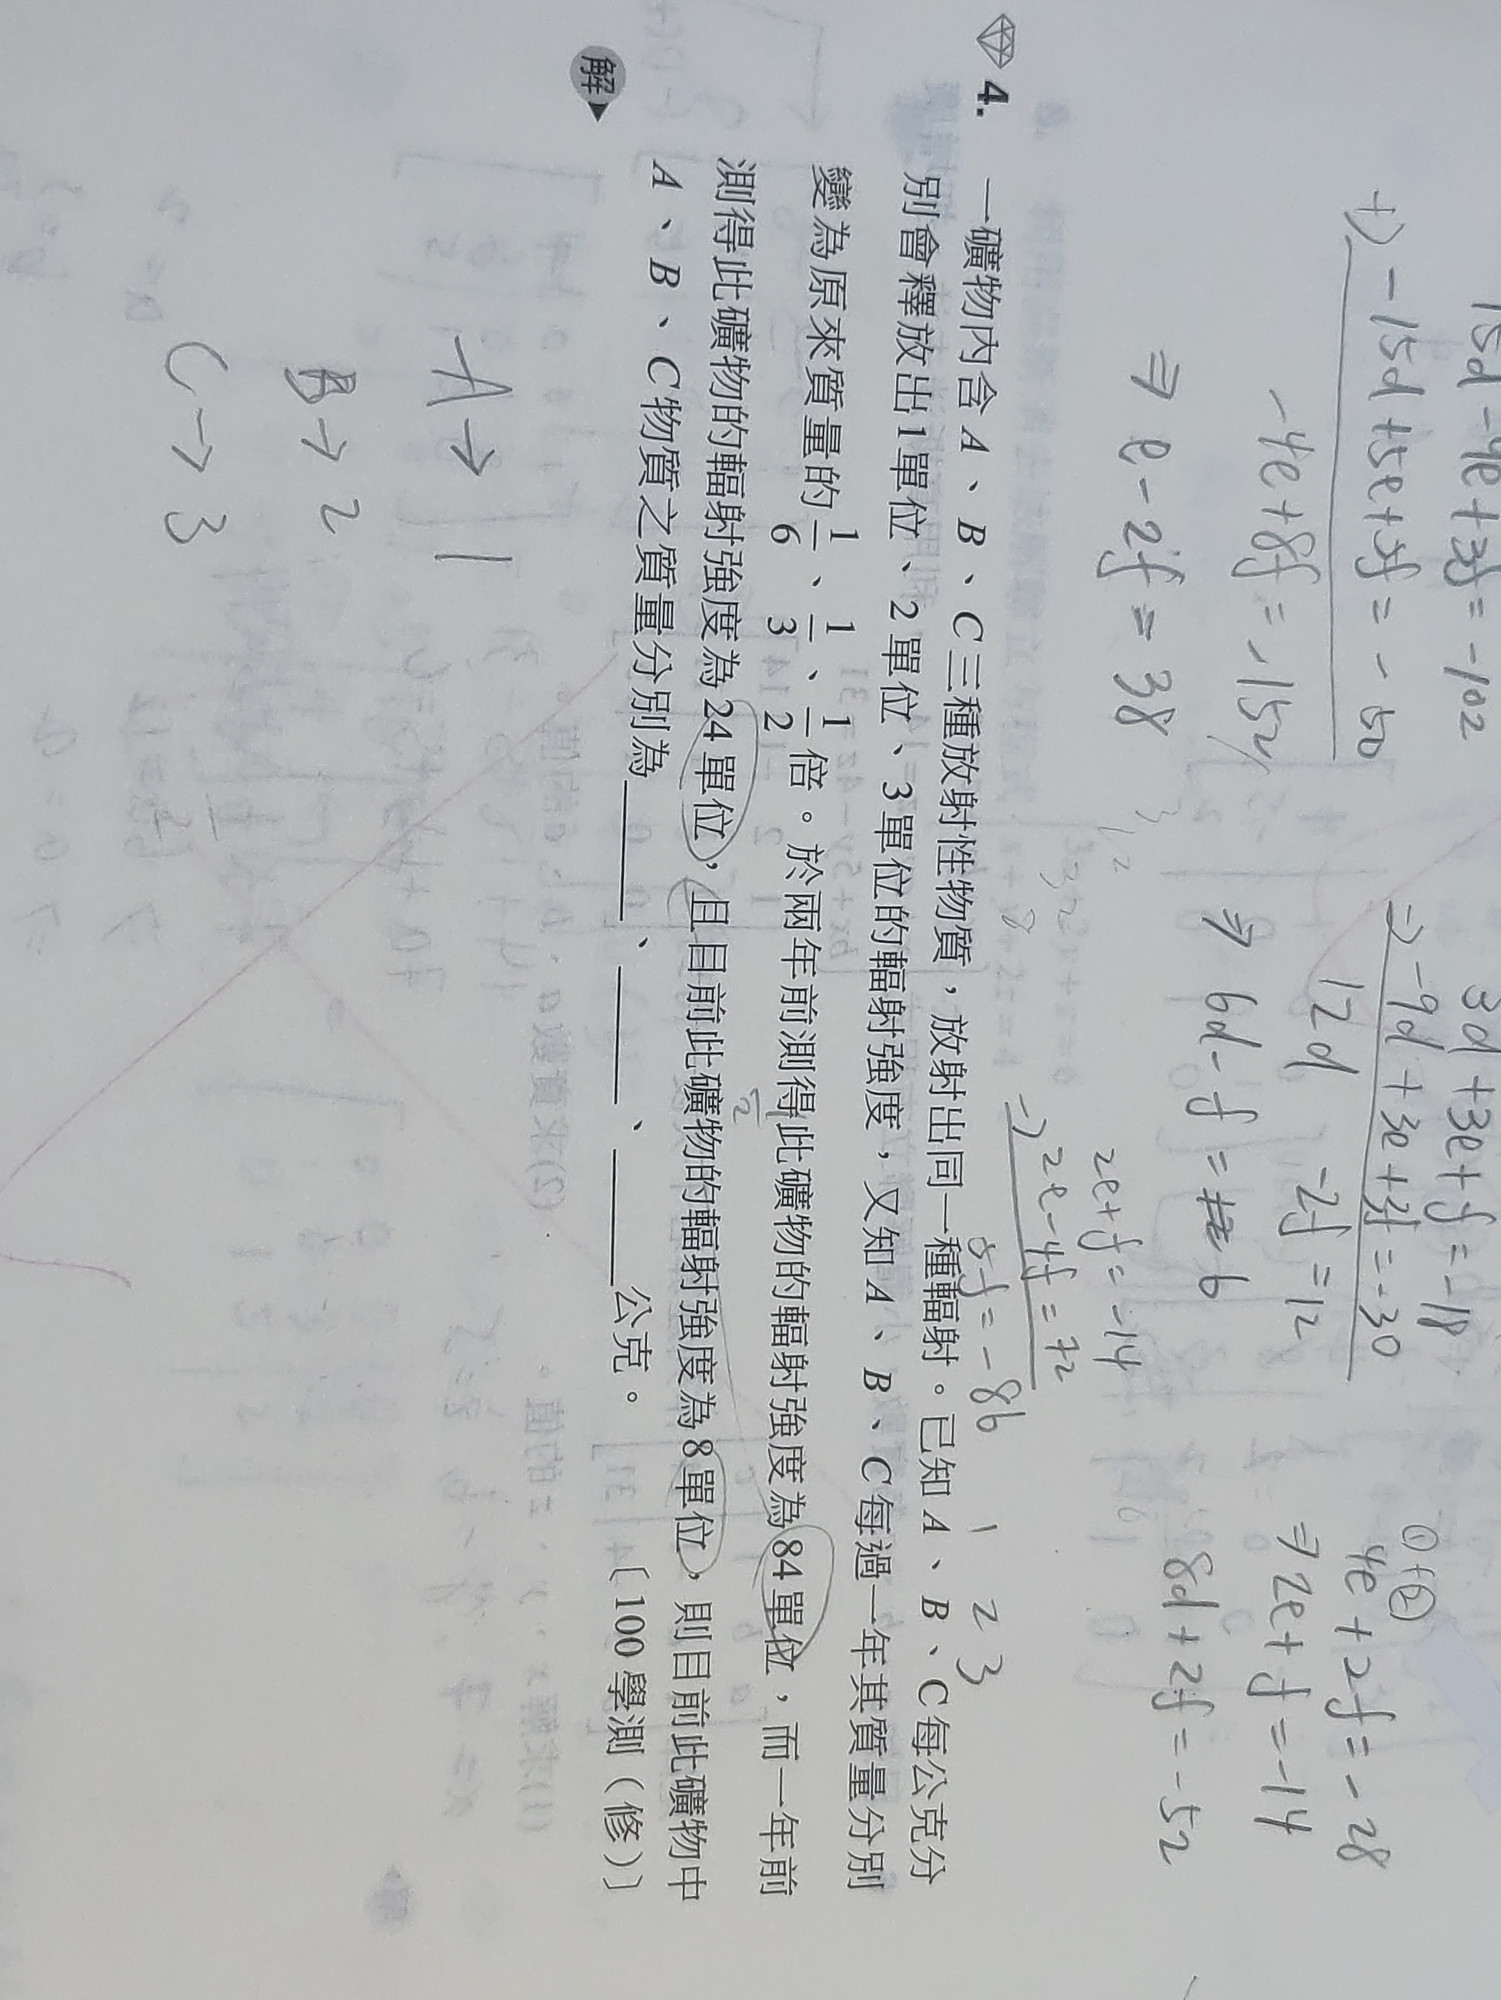 15d-4e+3f=-102
+) -15d+15e+5f=-50
-4e+8f=-152
⇒ e-2f=38
3d+3e+f=-18
-9d+3e+3f=-30
12d -2f=12
⇒ 6d-f=6
①+②
4e+2f=-28
⇒ 2e+f=-14
8d+2f=-52
2e+f=-14
-) 2e-4f=72
5f=-86
1 2 3
4. 一礦物內含A、B、C三種放射性物質，放射出同一種輻射。已知A、B、C每公克分
別會釋放出1單位、2單位、3單位的輻射強度，又知A、B、C每過一年其質量分別
變為原來質量的1/6、1/3、1/2倍。於兩年前測得此礦物的輻射強度為84單位，而一年前
測得此礦物的輻射強度為24單位，且目前此礦物的輻射強度為8單位，則目前此礦物中
A、B、C物質之質量分別為______、______、______公克。 〔100學測（修）〕
解
A→1
B→2
C→3